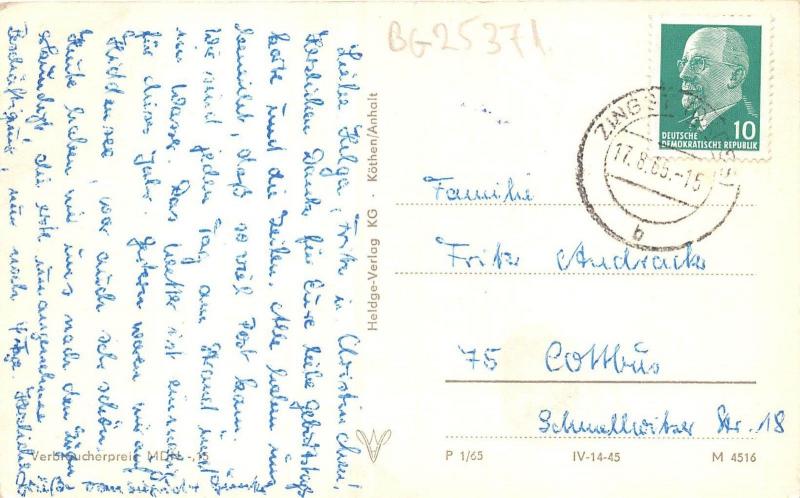 BG25371
DEUTSCHE
DEMOKRATISCHE REPUBLIK
10
ZINGST OSTSEE
17.8.65.-15
b
Liebe Helga, Fritz u. Christinchen!
Herzlichen Dank für Eure liebe Geburtstags
karte und die Zeilen. Alle haben
bemerkt, daß so viel Post kam.
Wir sind jeden Tag am Strand und
im Wasser. Das Wetter ist einmalig
für dieses Jahr. Gestern waren wir auf
Hiddensee, war auch sehr schön.
Heute haben wir uns nach den
erkundigt, die erste unangenehme
Beschäftigung, nur noch 4 Tage. Herzliche
Grüße von
Heldge-Verlag KG · Köthen/Anhalt
Familie
Fritz Andrack
75 Cottbus
Schmellwitzer Str. 18
Verbraucherpreis MDN -,15
P 1/65 IV-14-45 M 4516